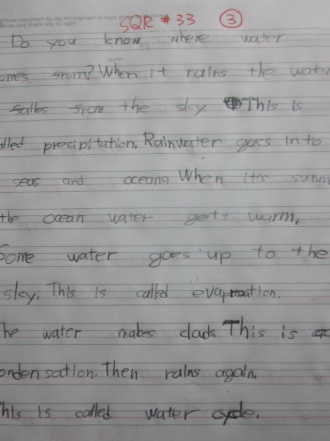 SQR # 33 ③
Do you know where water
omes from? When it rains the water
falls from the sky This is
alled precipitation. Rainwater goes in to
seas and oceans When it's sunny
the ocean water gets warm,
Some water goes up to the
sky. This is called evaporation.
he water makes clouds This is
ondensation. Then rains again.
his is called water cycle.